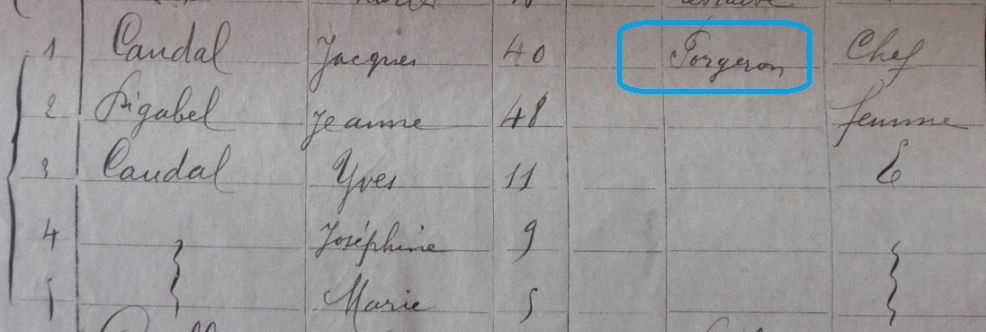 1 Caudal Jacques 40 Forgeron Chef
2 Pigabel Jeanne 48 femme
3 Caudal Yves 11 E
4 Joséphine 9
5 Marie 5